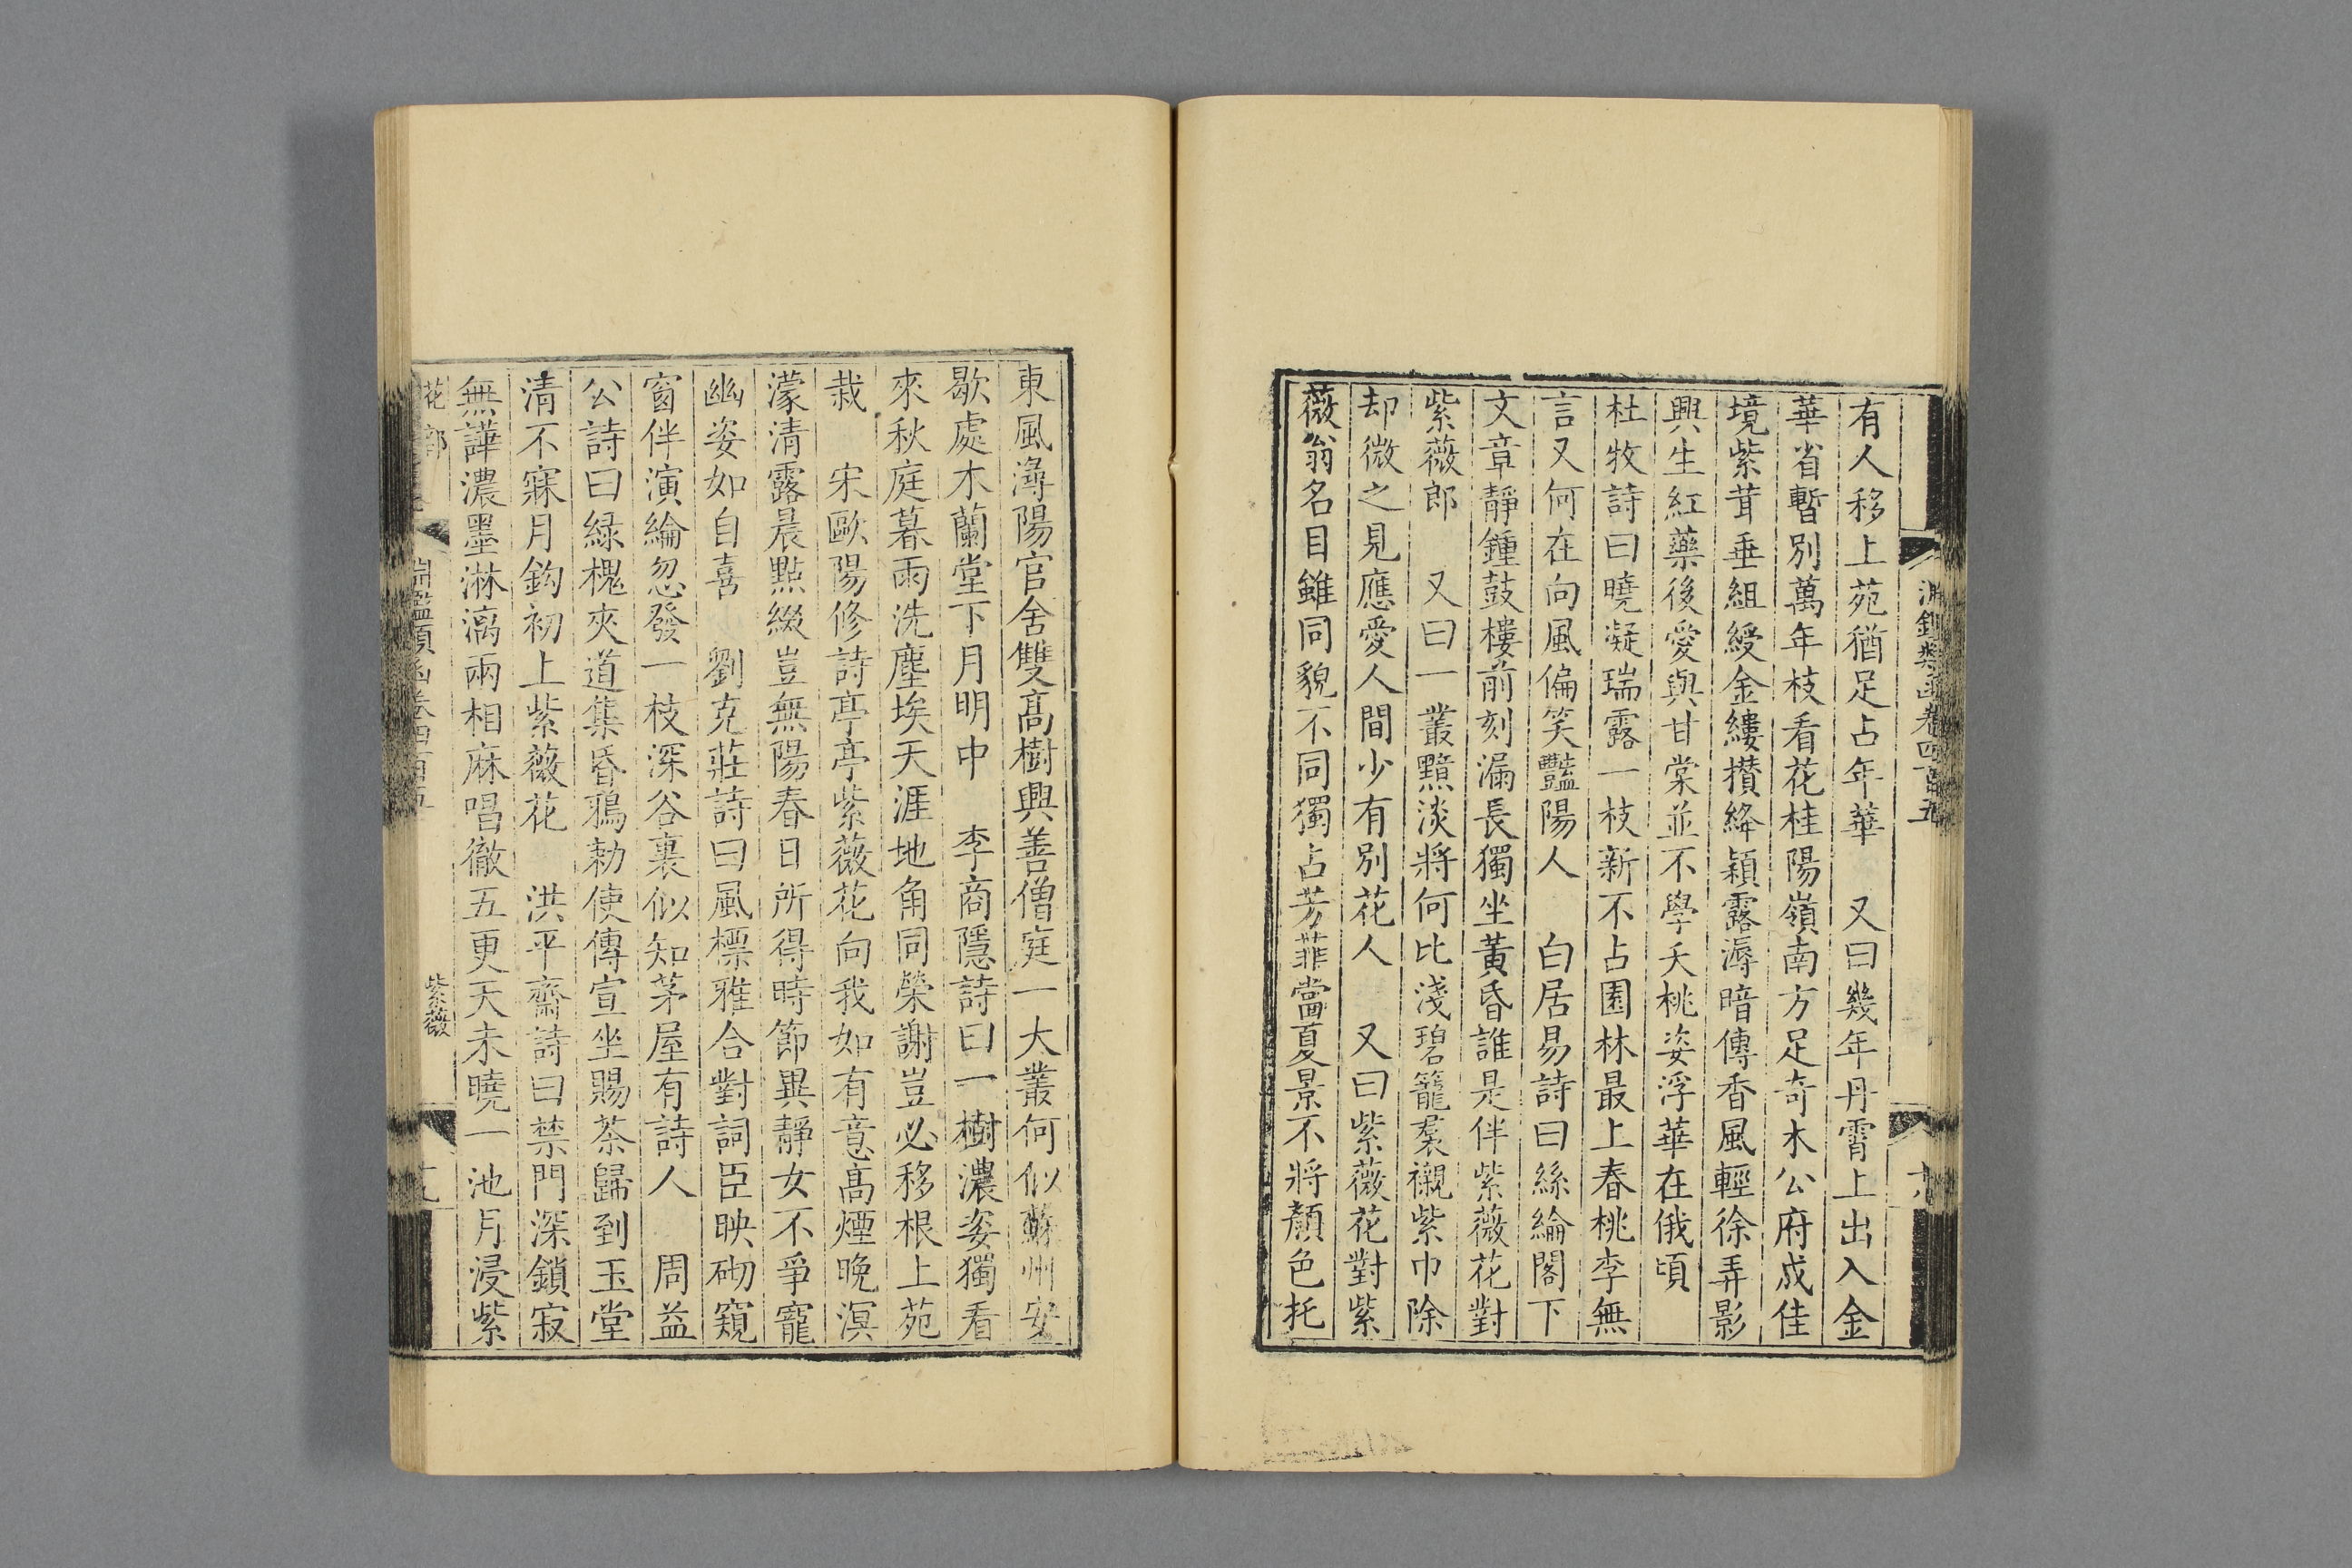 淵鑑類函卷四百五
十八
有人移上苑猶足占年華　又曰幾年丹霄上出入金
華省暫別萬年枝看花桂陽嶺南方足奇木公府成佳
境紫茸垂組綬金縷攢絳穎露溽暗傳香風輕徐弄影
興生紅藥後愛與甘棠並不學夭桃姿浮華在俄頃
杜牧詩曰曉凝瑞露一枝新不占園林最上春桃李無
言又何在向風偏笑豔陽人　白居易詩曰絲綸閣下
文章靜鍾鼓樓前刻漏長獨坐黃昏誰是伴紫薇花對
紫薇郎　又曰一叢黯淡將何比淺碧籠裠襯紫巾除
却微之見應愛人間少有別花人　又曰紫薇花對紫
薇翁名目雖同貌不同獨占芳菲當夏景不將顏色托
東風潯陽官舍雙髙樹興善僧庭一大叢何似蘇州安
歇處木蘭堂下月明中　李商隱詩曰一樹濃姿獨看
來秋庭暮雨洗塵埃天涯地角同榮謝豈必移根上苑
栽　宋歐陽修詩亭亭紫薇花向我如有意髙煙晚溟
濛清露晨點綴豈無陽春日所得時節異靜女不爭寵
幽姿如自喜　劉克莊詩曰風標雅合對詞臣映砌窺
窗伴演綸忽發一枝深谷裏似知茅屋有詩人　周益
公詩曰緑槐夾道集昏鴉勅使傳宣坐賜茶歸到玉堂
清不寐月鈎初上紫薇花　洪平齋詩曰禁門深鎖寂
無譁濃墨淋漓兩相麻唱徹五更天未曉一池月浸紫
花部
淵鑑類函卷四百五
紫薇